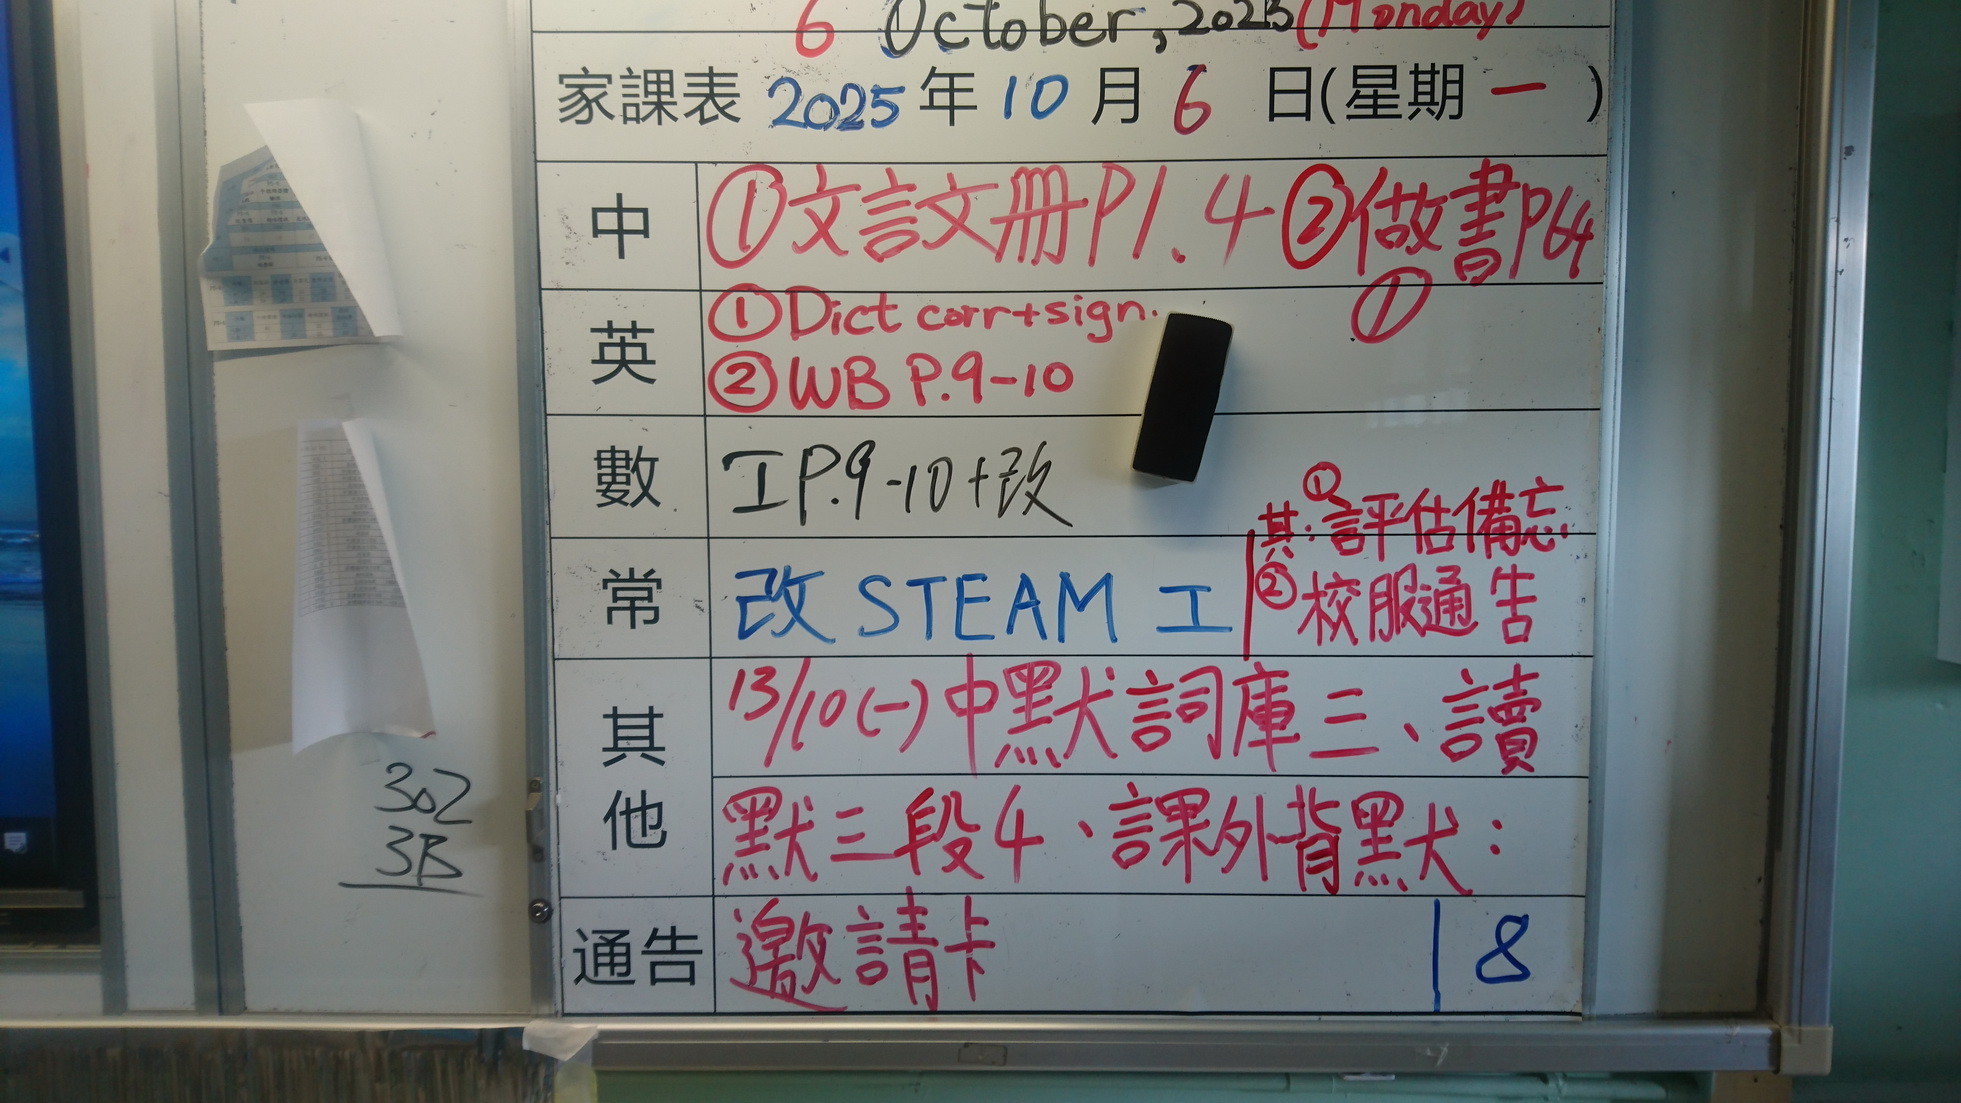 6 October, 2025 (Monday)
家課表 2025 年 10 月 6 日(星期 一 )
中 ①文言文冊P1.4 ②做書P64
①
英 ①Dict corr+sign.
②WB P.9-10
數 工P.9-10+改
常 改 STEAM 工
其: ①評估備忘
②校服通告
其他 13/10(一)中默詞庫三、讀
默三段4、課外背默:
通告 邀請卡 8
302
3B